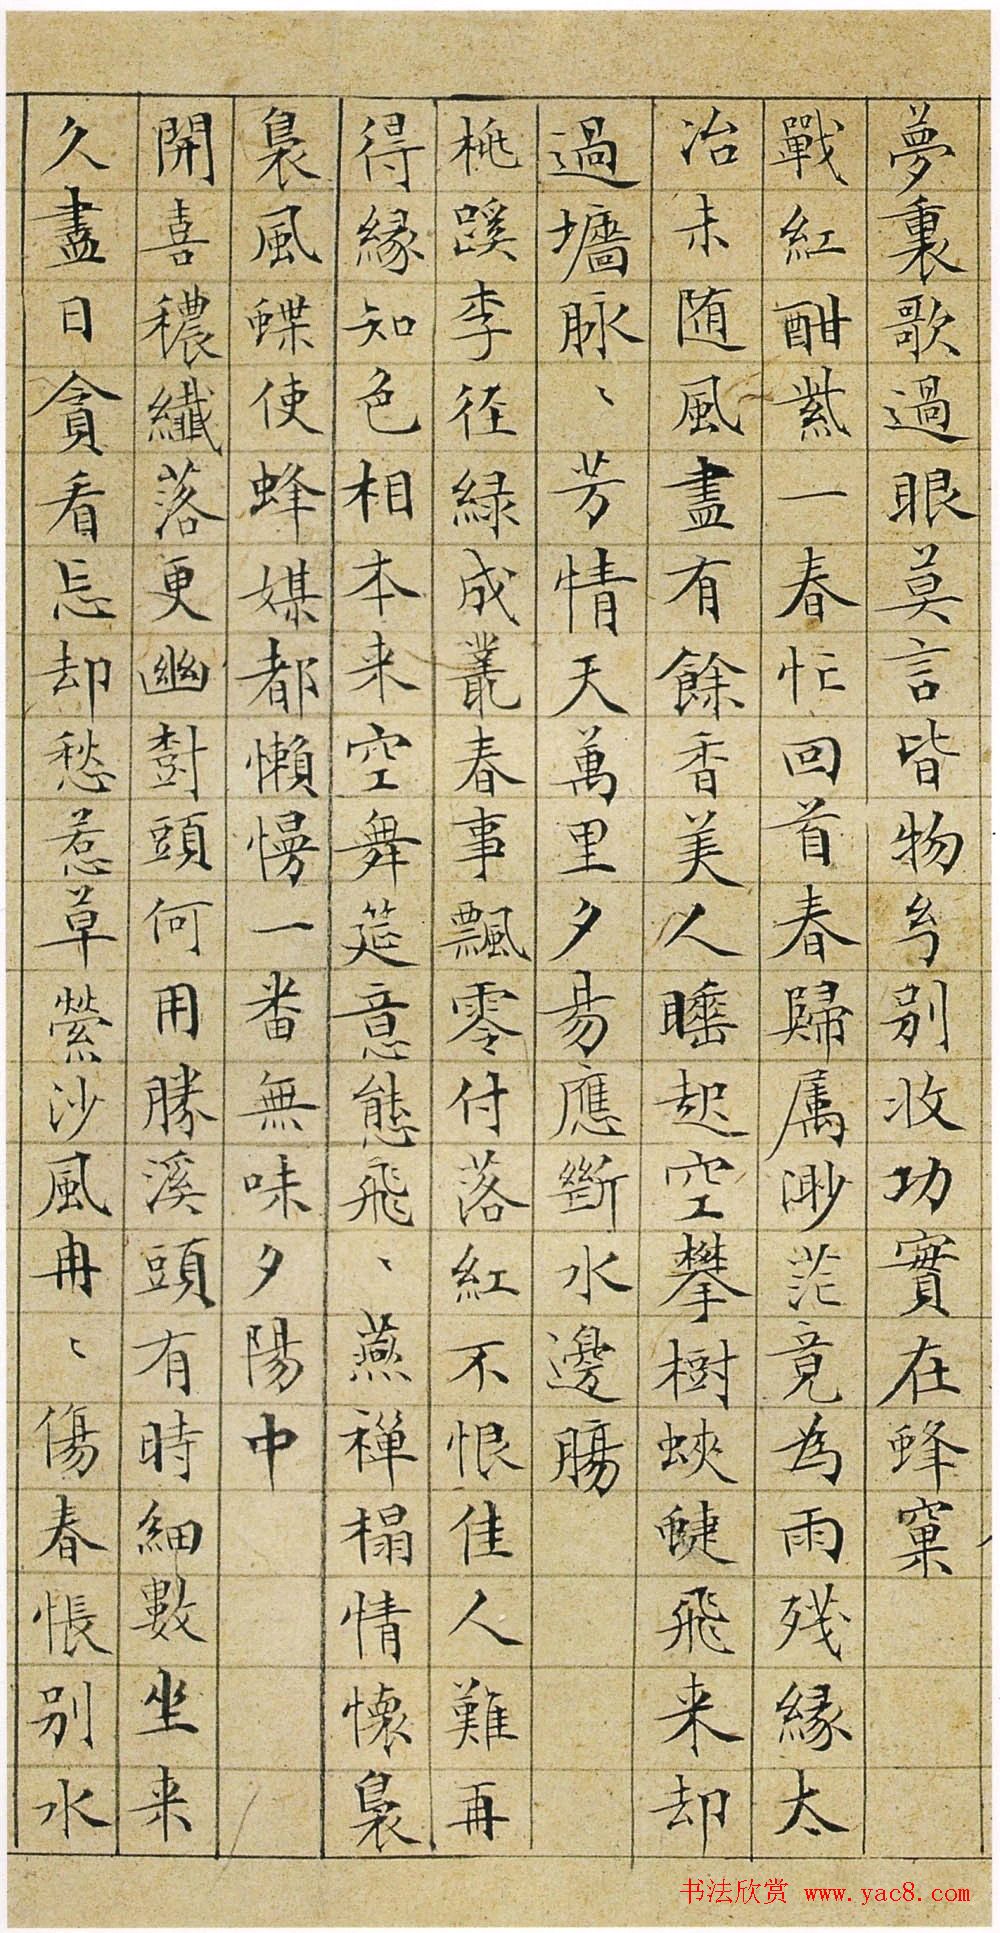 夢裏歌過眼莫言皆物兮別收功實在蜂窠
戰紅酣紫一春忙回首春歸屬渺茫竟為雨殘緣太
冶未随風盡有餘香美人睡起空攀樹蛺蜨飛来却
過墻脉、芳情天萬里夕易應斷水邊腸
桃蹊李径綠成叢春事飄零付落紅不恨佳人難再
得緣知色相本来空舞筵意態飛、燕禅榻情懷裊
裊風蝶使蜂媒都懶慢一番無味夕陽中
開喜穠纖落更幽對頭何用勝溪頭有時細數坐来
久盡日貪看忘却愁惹草縈沙風冉、傷春悵別水
书法欣赏 www.yac8.com